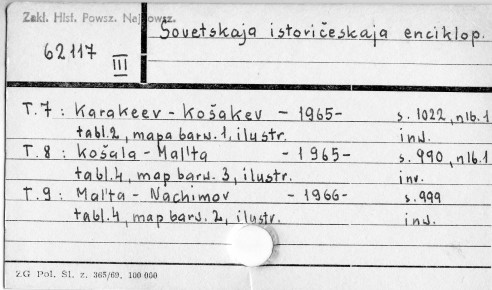 Zakł. Hist. Powsz. Najnowsz.
Sovetskaja istoričeskaja enciklop.
62117
III
T.7 : Karakeev - Košakev - 1965- s. 1022, nlb.1
tabl.2, mapa barw. 1, ilustr. inw.
T.8 : Košala - Mal'ta - 1965- s. 990, nlb.1
tabl.4, map barw. 3, ilustr. inw.
T.9 : Mal'ta - Nachimov - 1966- s.999
tabl.4, map barw. 2, ilustr. inw.
ZG Pol. Śl. z. 365/69, 100 000